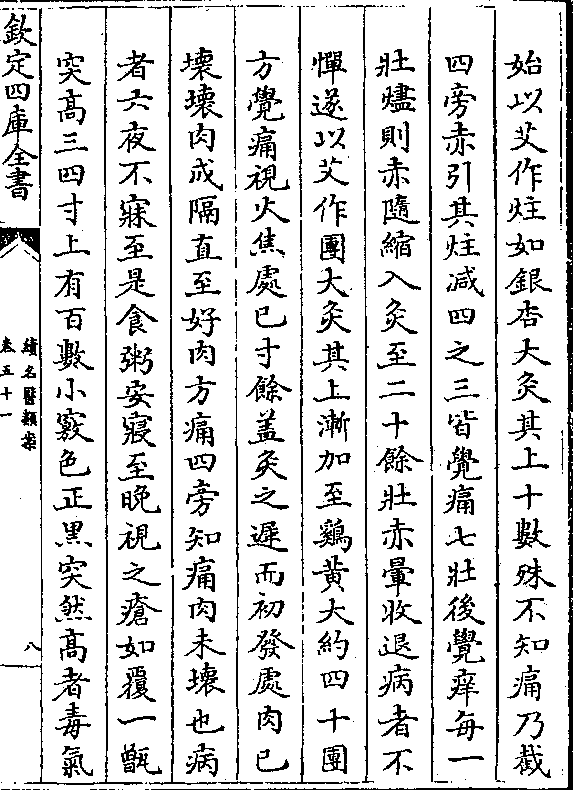 始以艾作炷如銀杏大灸其上十數殊不知痛乃截
四旁赤引其炷减四之三皆覺痛七壯後覺痒每一
壯燼則赤隨縮入灸至二十餘壯赤暈收退病者不
憚遂以艾作團大灸其上漸加至鷄黄大約四十團
方覺痛視火焦處已寸餘盖灸之遲而初發處肉已
壊壊肉成隔直至好肉方痛四旁知痛肉未壊也病
者六夜不寐至是食粥安寢至晚視之瘡如覆一甑
突高三四寸上有百數小竅色正黒突然高者毒氣
欽定四庫全書
續名醫類案
卷五十一
八